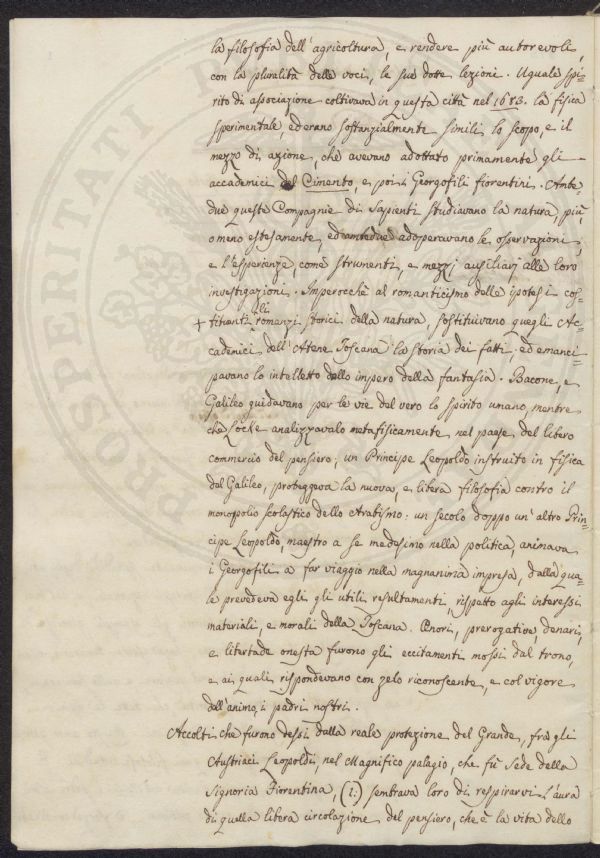 la filosofia dell'agricoltura, e rendere più autorevoli,
con la pluralità delle voci, le sue dotte lezioni. Uguale spi-
rito di associazione coltivava in questa città nel 1653. la fisica
sperimentale, ed erano sostanzialmente simili lo scopo, e il
mezzo di azione, che avevano adottato primamente gli
accademici del Cimento, e poi i Georgofili fiorentini. Ambe-
due queste Compagnie di Sapienti studiavano la natura, più,
o meno estesamente, ed ambedue adoperavano le osservazioni,
e l'esperienze, come strumenti, e mezzi ausiliarj alle loro
investigazioni. Imperocchè al romanticismo delle ipotesi cos-
+ tituenti gli romanzi storici della natura, sostituivano quegli Ac-
cademici dell'Atene Toscana la storia dei fatti; ed emanci-
pavano lo intelletto dello impero della fantasia. Bacone, e
Galileo guidavano per le vie del vero lo spirito umano, mentre
che Locke analizzavalo metafisicamente nel paese del libero
commercio del pensiero; un Principe Leopoldo instruito in fisica
dal Galileo, proteggeva la nuova, e libera filosofia contro il
monopolio scolastico dello Arabismo: un secolo doppo un'altro Prin-
cipe Leopoldo, maestro a se medesimo nella politica, animava
i Georgofili a far viaggio nella magnanima impresa, dalla qua-
le prevedeva egli gli utili resultamenti, rispetto agli interessi
materiali e morali della Toscana. Onori, prerogative denari,
e libertade onesta furono gli eccitamenti mossi dal trono,
e ai quali rispondevano con zelo riconoscente, e col vigore
dell'animo, i padri nostri.
Accolti che furono dessi dalla reale protezione del Grande, fra gli
Austriaci Leopoldi, nel Magnifico palagio, che fù Sede della
Signoria Fiorentina, (1:) sembrava loro di respirarvi l'aura
di quella libera circolazione del pensiero, che è la vita dello
PROSPERITATI